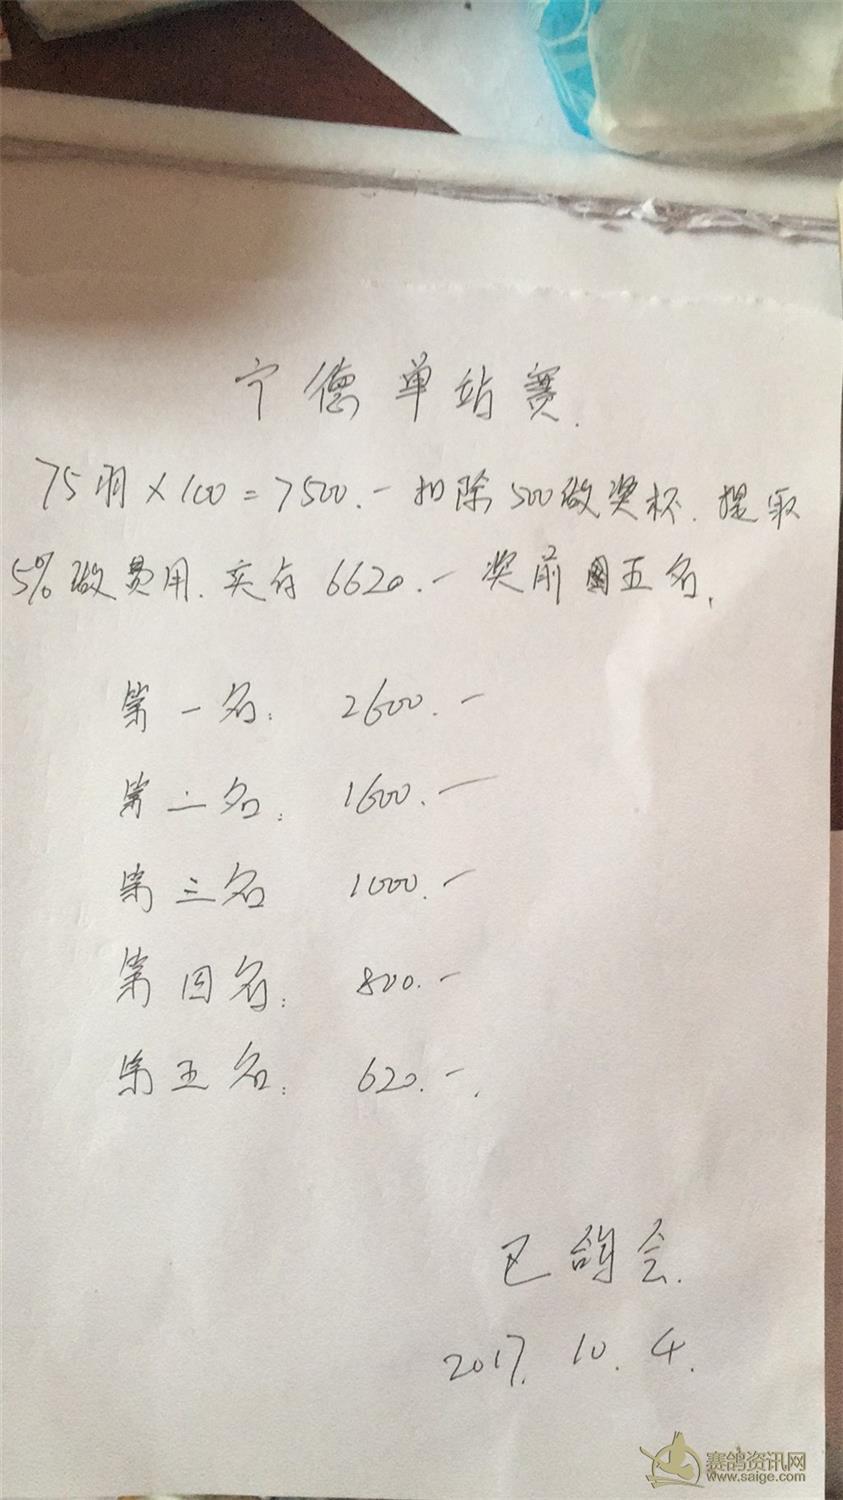 宁德单站赛.
75羽×100=7500.- 扣除500做奖杯.提取
5%做费用.实有6620.- 奖前五名.
第一名: 2600.-
第二名: 1600.-
第三名 1000.-
第四名: 800.-
第五名: 620.-.
鸽会.
2017.10.4.
赛鸽资讯网
www.saige.com